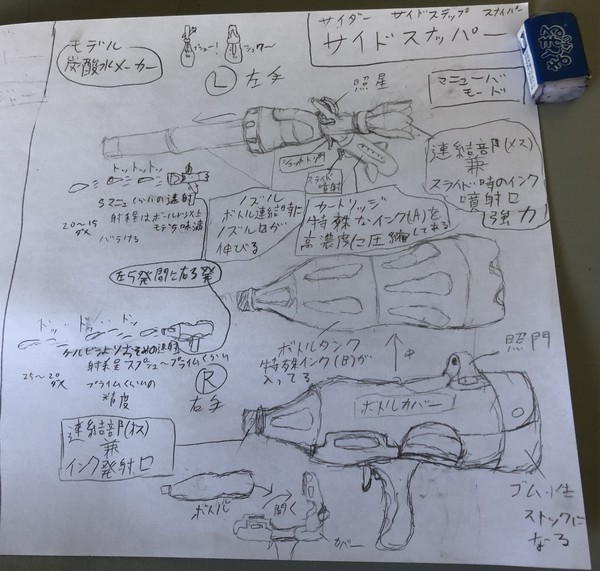 サイダー サイドステップ スナイパー
サイドスナッパー
モデル
炭酸水メーカー
L 左手
照星
マニューバ
モード
連結部(メス)
兼
スライド時のインク
噴射口
強力
スライド
噴射
ドットットッ
射程はボールドV以上
20~15
バラける
ノズル
ボトル連結時に
ノズルが
伸びる
カートリッジ
特殊なインク(A)を
高濃度に圧縮してある
左5発間に右3発
ドッ ドッ
射程スプシュ~プライムくらい
25~20
プライムくらいの
精度
R
右手
ボトルタンク
特殊インク(B)が
入ってる
照門
ボトルカバー
連結部(オス)
兼
インク発射口
ボトル
開く
カバー
ゴム性
ストックに
なる